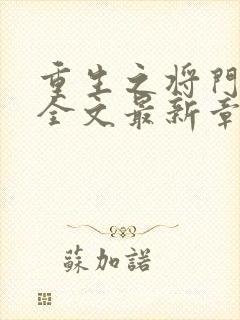 重生之将門
全文最新章
蘇加諾